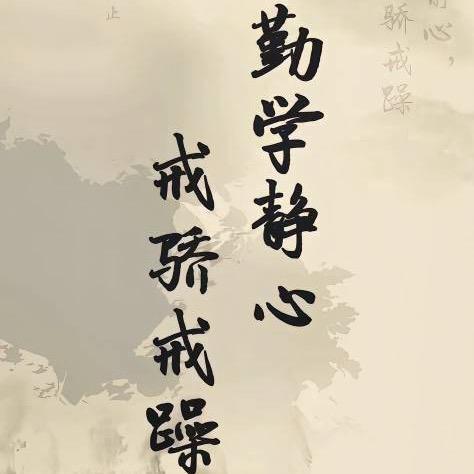 静心，
骄戒躁
勤学静心
戒骄戒躁
止